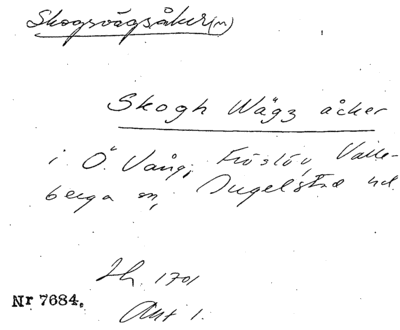 Skogsvägsåker(n)
Skogh Wägz åcker
i Ö. Vång, Fröslöv, Valle-
berga sn, Ingelstad hd.
Jb. 1701
Nr 7684.
Ant 1.